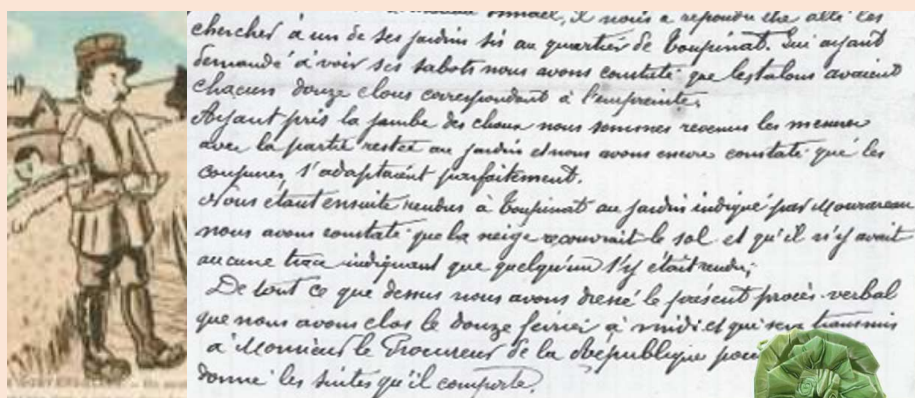 Ismael, il nous a répondu être allé les
chercher à un de ses jardins sis au quartier de Toupinat. Lui ayant
demandé à voir ses sabots nous avons constaté que les talons avaient
chacun douze clous correspondant à l'empreinte,
Ayant pris la jambe des choux nous sommes revenus les mesurer
avec la partie restée au jardin et nous avons encore constaté que les
coupures s'adaptaient parfaitement.
Nous étant ensuite rendus à Toupinat au jardin indiqué par Mourareau
nous avons constaté que la neige recouvrait le sol et qu'il n'y avait
aucune trace indiquant que quelqu'un s'y était rendu;
De tout ce que dessus nous avons dressé le présent procès-verbal
que nous avons clos le douze février à midi et qui sera transmis
à Monsieur le Procureur de la République pour
donné les suites qu'il comporte.